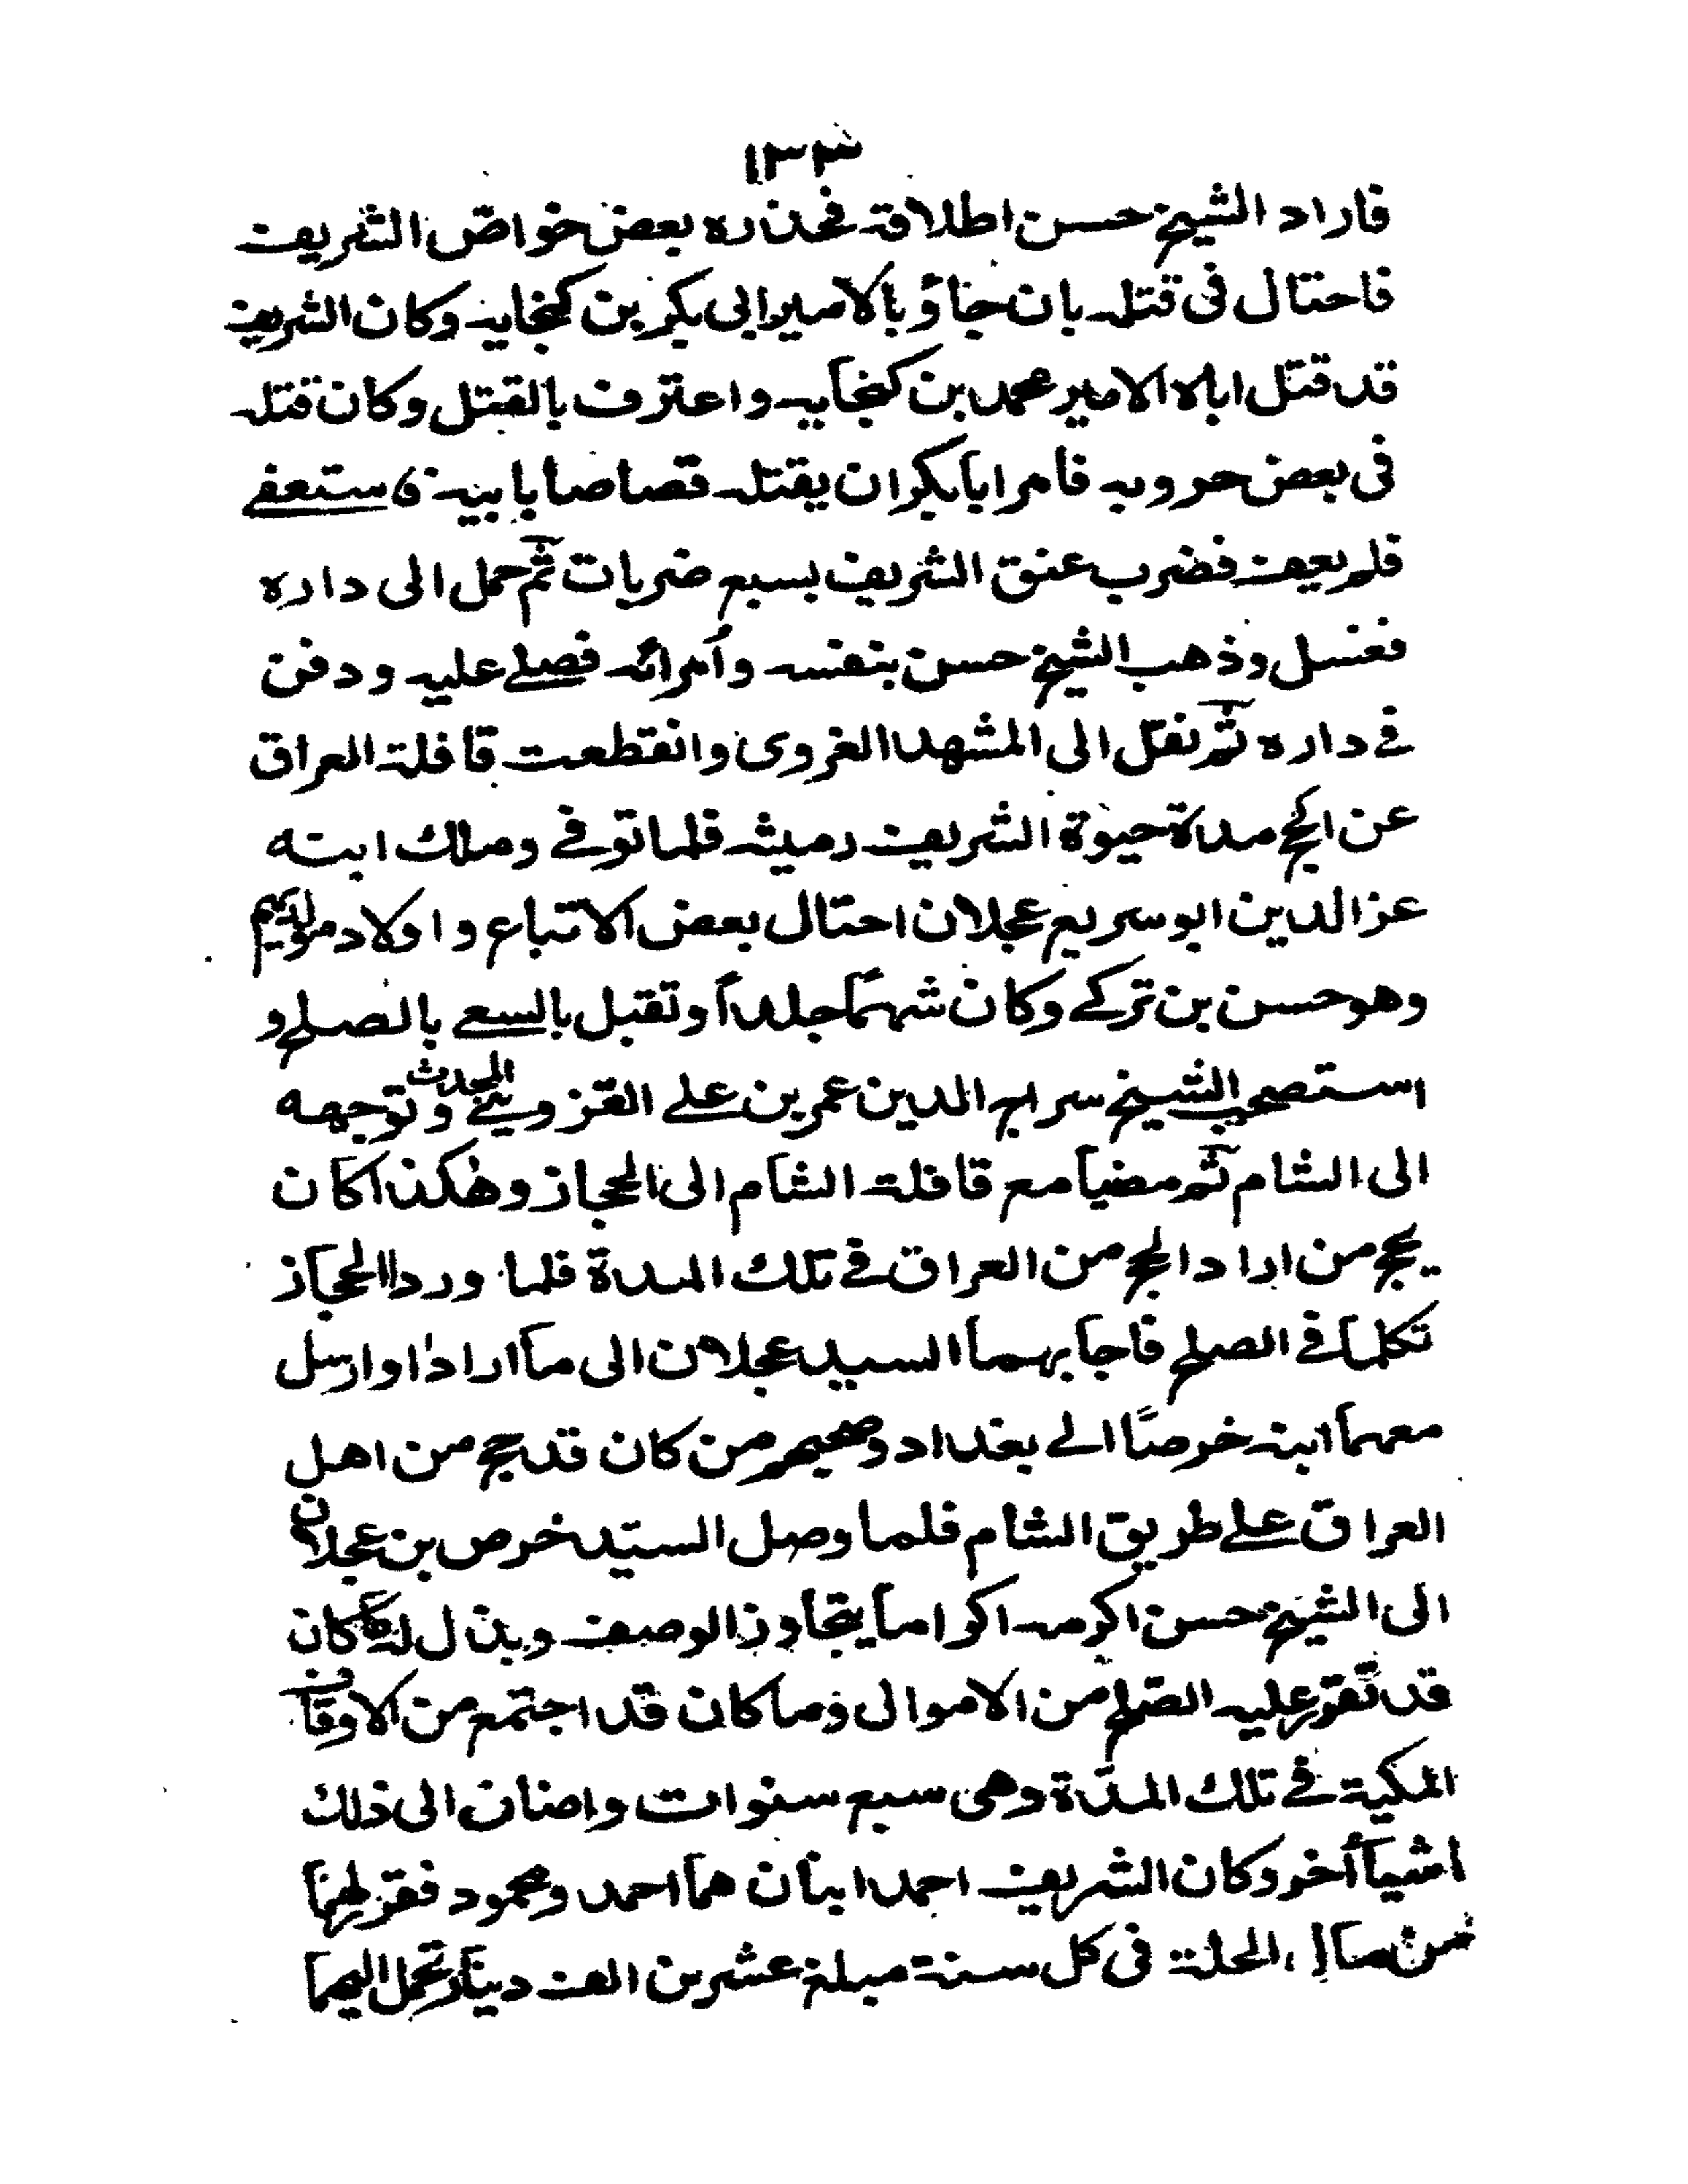 ١٣٣
فاراد الشيخ حسن اطلاقه فحذره بعض خواص الشريف
فاحتال فى قتله بان جاؤ بالامير ابى بكر بن كنجايه وكان الشريف
قد قتل اباه الامير محمد بن كنجايه واعترف بالقتل وكان قتله
فى بعض حروبه فامر ابا بكر ان يقتله قصاصا بابيه فاستعفے
فلم يعف فضرب عنق الشريف بسبع ضربات ثم حمل الى داره
فغسل وذهب الشيخ حسن بنفسه وأمرائه فصلے عليه ودفن
فے داره ثم نقل الى المشهد الغروى وانقطعت قافلة العراق
عن الحج مدة حيوة الشريف رميثه فلما توفے وملك ابنه
عز الدين ابو سريع عجلان احتال بعض الاتباع واولاد مواليهم
وهو حسن بن تركے وكان شهمًا جلداً وتقبل بالسعے بالصلح و
استصحب الشيخ سراج الدين عمر بن علے القزوينے المحدث وتوجهه
الى الشام ثم مضيا مع قافلة الشام الى الحجاز وهٰكذا كان
يحج من اراد الحج من العراق فے تلك المدة فلما وردا الحجاز
تكلما فے الصلح فاجابهما السيد عجلان الى ما ارادا وارسل
معهما ابنه خرصًا الے بغداد وصحبهم من كان قد حج من اهل
العراق علے طريق الشام فلما وصل السيّد خرص بن عجلان
الى الشيخ حسن اكرمه اكراما يتجاوز الوصف وبذل له ما كان
قد تقرر عليه الصّلح من الاموال وما كان قد اجتمع من الاوقاف
المكية فے تلك المدّة وهى سبع سنوات واضاف الى ذلك
اشيآ أخر وكان الشريف احمد ابنان هما احمد ومحمود فقرر لهما
من مال الحلة فى كل سنة مبلغ عشرين الف دينار تحمل اليهما